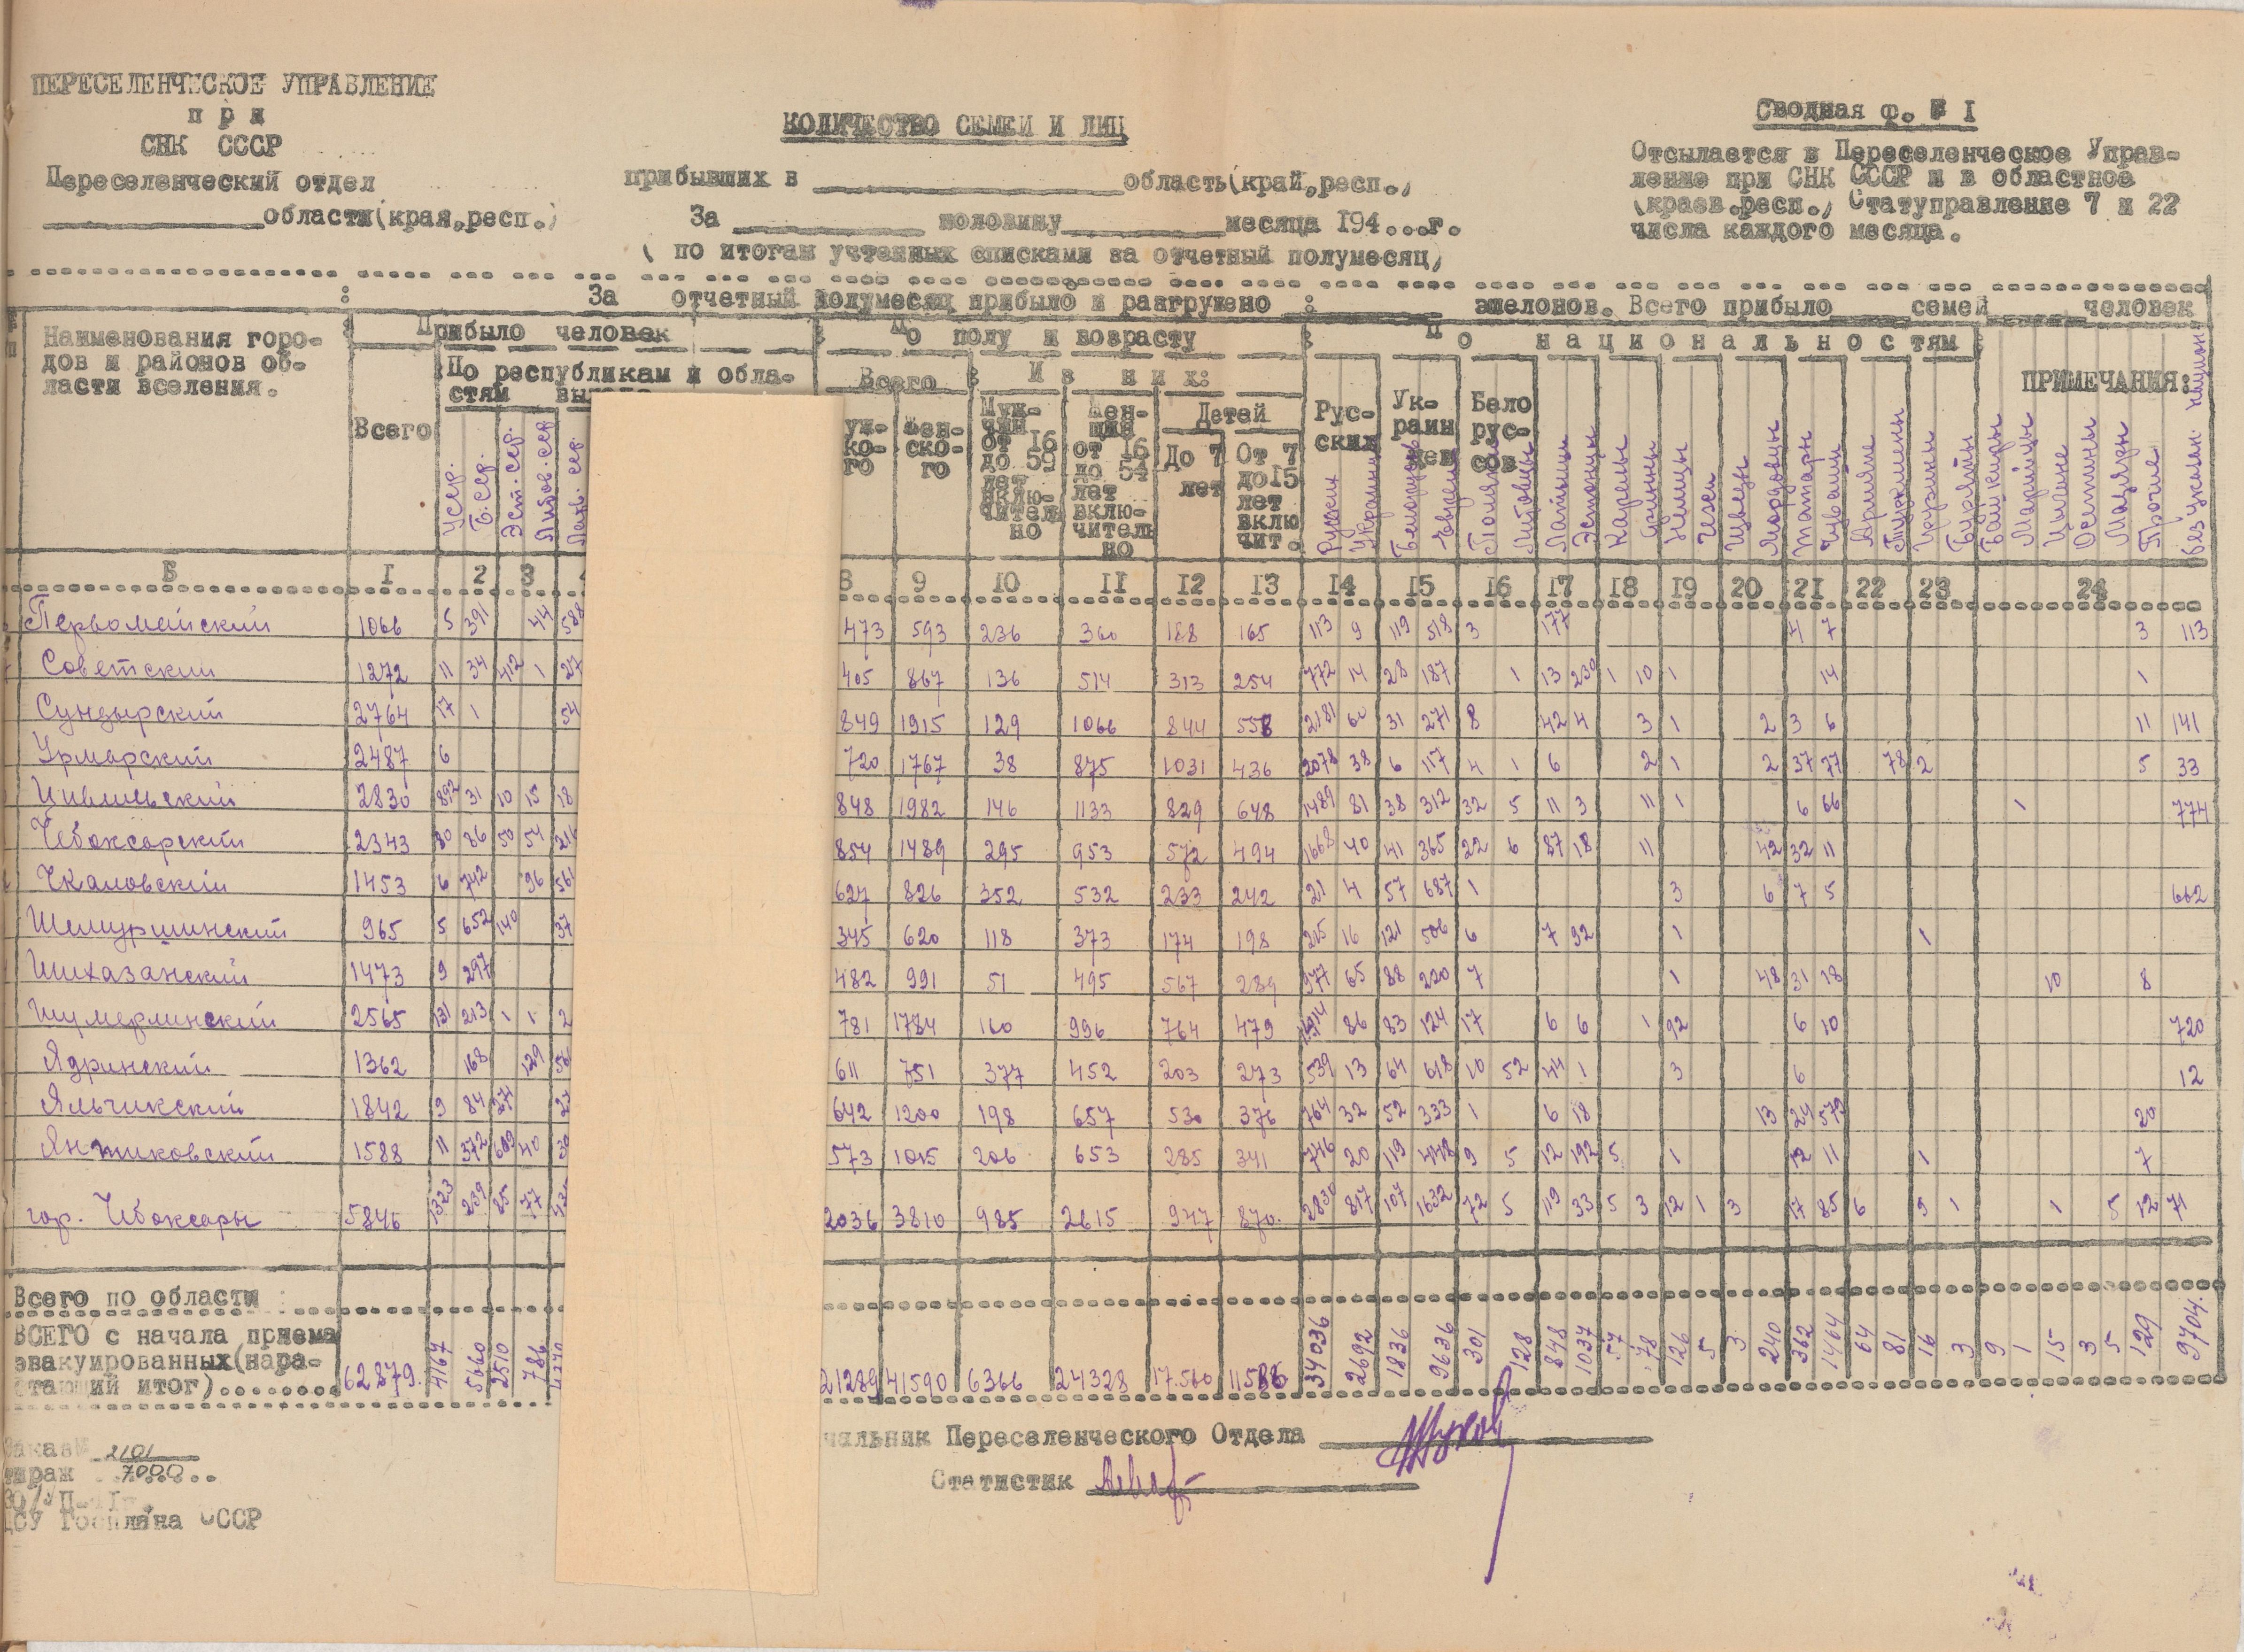 ПЕРЕСЕЛЕНЧЕСКОЕ УПРАВЛЕНИЕ
при
СНК СССР
Переселенческий отдел
области(края,респ.)
КОЛИЧЕСТВО СЕМЕЙ И ЛИЦ
прибывших в область(край,респ.)
За половину месяца 194...г.
( по итогам учтенных списками за отчетный полумесяц)
Сводная ф. № I
Отсылается в Переселенческое Управ-
ление при СНК СССР и в областное
(краев.респ.) Статуправление 7 и 22
числа каждого месяца.
За отчетный полумесяц прибыло и разгружено : эшелонов. Всего прибыло семей человек
Наименования горо-
дов и районов об-
ласти вселения.
Прибыло человек
Всего
По республикам и обла-
стям
Усср. Б.сср. Эст.сср. Литов.сср Латв.сср
По полу и возрасту
Всего
Из них:
уж-
ко-
го
Жен-
ско-
го
Муж-
чин
от 16
до 59
лет
вклю-
читель
но
Жен-
щин
от 16
до 54
лет
вклю-
читель
но
Детей
До 7
лет
От 7
до 15
лет
вклю
чит.
По национальностям
Рус-
ских
Ук-
раин
цев
Бело
рус-
сов
ПРИМЕЧАНИЯ:
Русских Украинцы Белоруссы Евреи Поляки Литовцы Латыши Эстонцы Карелы Финны Немцы Чехи Шведы Мордовцы Татары Чуваши Армяне Туркмены Грузины Буряты Башкиры Марийцы Цыгане Осетины Мадяры Прочие без указан. национ.
Б I 2 3 8 9 10 11 12 13 14 15 16 17 18 19 20 21 22 23 24
Первомайский 1066 5 391 44 588 473 593 236 360 188 165 113 9 119 518 3 177 4 7 3 113
Советский 1272 11 34 412 1 27 405 867 136 514 313 254 772 14 28 187 1 13 230 1 10 1 14 1
Сундырский 2764 17 1 54 849 1915 129 1066 844 558 2181 60 31 271 8 42 4 3 1 2 3 6 11 141
Урмарский 2487 6 720 1767 38 875 1031 436 2078 38 6 117 4 1 6 2 1 2 37 77 78 2 5 33
Цивильский 2830 892 31 10 15 18 848 1982 146 1133 829 648 1489 81 38 312 32 5 11 3 11 1 6 66 1 774
Чебоксарский 2343 30 86 50 54 216 854 1489 295 953 572 494 1668 40 41 365 22 6 87 18 11 42 32 11
Чкаловский 1453 6 742 96 561 627 826 352 532 233 242 21 4 57 687 1 3 6 7 5 662
Шемуршинский 965 5 652 140 37 345 620 118 373 174 198 215 16 121 506 6 7 92 1 1
Шихазанский 1473 9 297 482 991 51 495 567 289 977 65 88 220 7 1 48 31 18 10 8
Шумерлинский 2565 131 213 1 1 2 781 1784 160 996 764 479 1414 86 83 124 17 6 6 1 92 6 10 720
Ядринский 1362 168 129 56 611 751 377 452 203 273 539 13 64 618 10 52 44 1 3 6 12
Яльчикский 1842 9 84 27 642 1200 198 657 530 376 764 32 52 333 1 6 18 13 24 579 20
Янтиковский 1588 11 372 609 40 30 573 1015 206 653 285 341 746 20 119 448 9 5 12 192 5 1 12 11 1 7
гор. Чебоксары 5846 1323 239 85 77 2036 3810 985 2615 947 870 2830 817 107 1632 72 5 119 33 5 3 12 1 3 17 85 6 9 1 1 5 12 71
Всего по области
ВСЕГО с начала приема
эвакуированных(нара-
стающий итог)........ 62879. 4167 5660 2510 786 21289 41590 6366 24328 17.560 11586 34036 2692 1836 9636 301 128 848 1037 57 78 126 5 3 240 362 1464 64 81 16 3 9 1 15 3 5 129 9704.
чальник Переселенческого Отдела
Статистик
Заказ№ 2101
тираж 7000
ЦСУ Госплана СССР